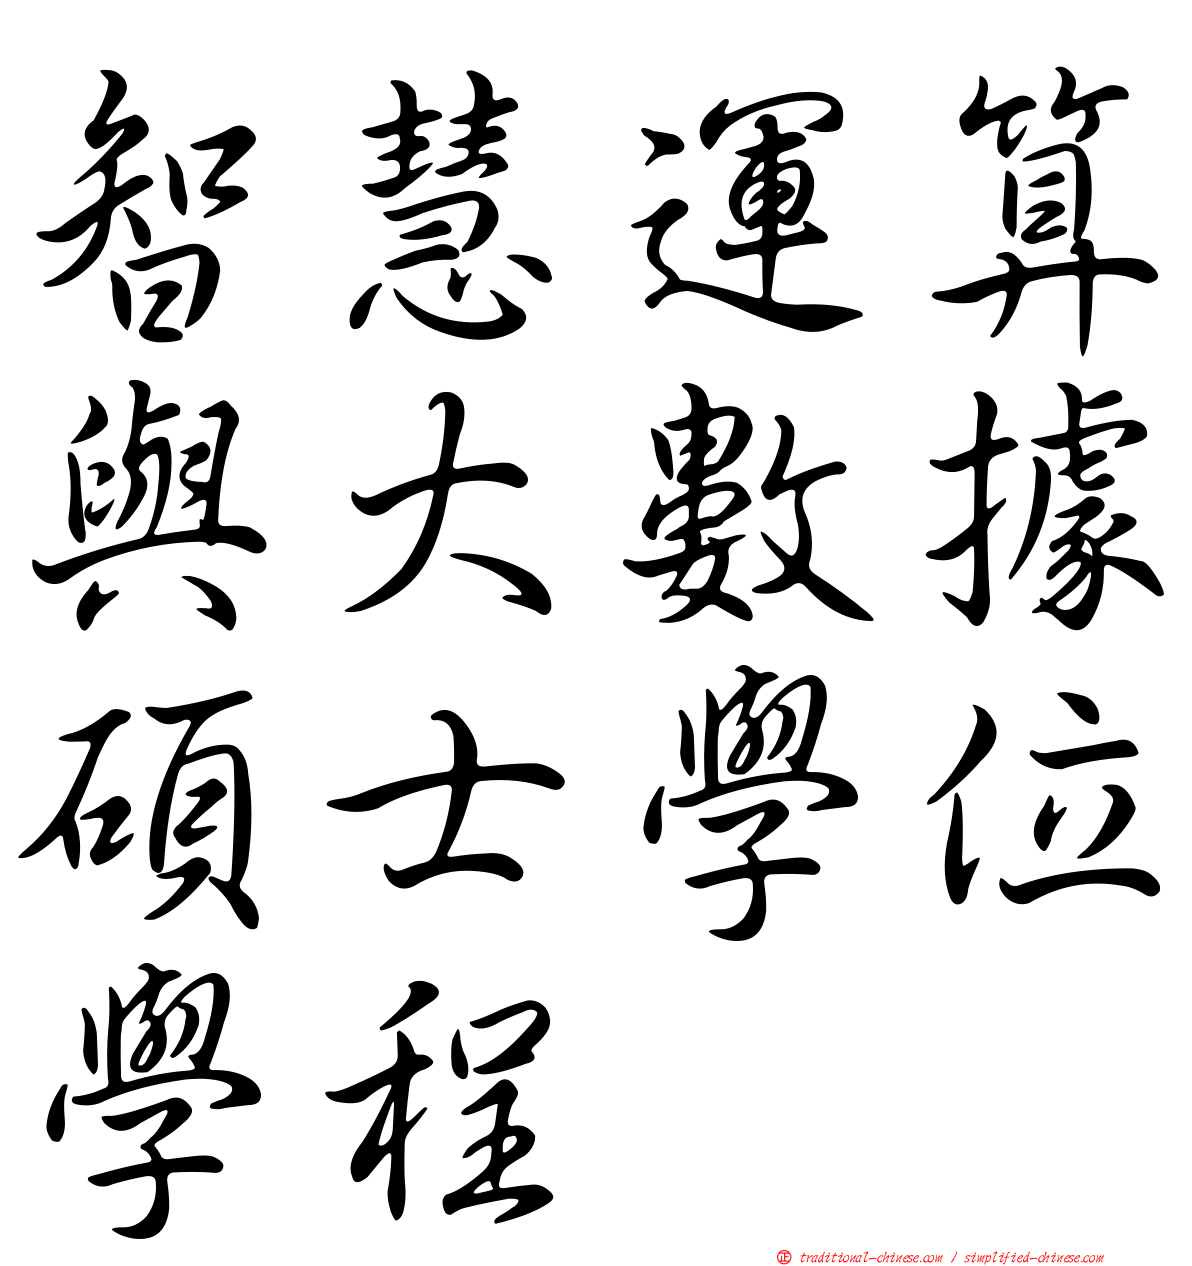 智慧運算
與大數據
碩士學位
學程
㊣ traditional-chinese.com / simplified-chinese.com